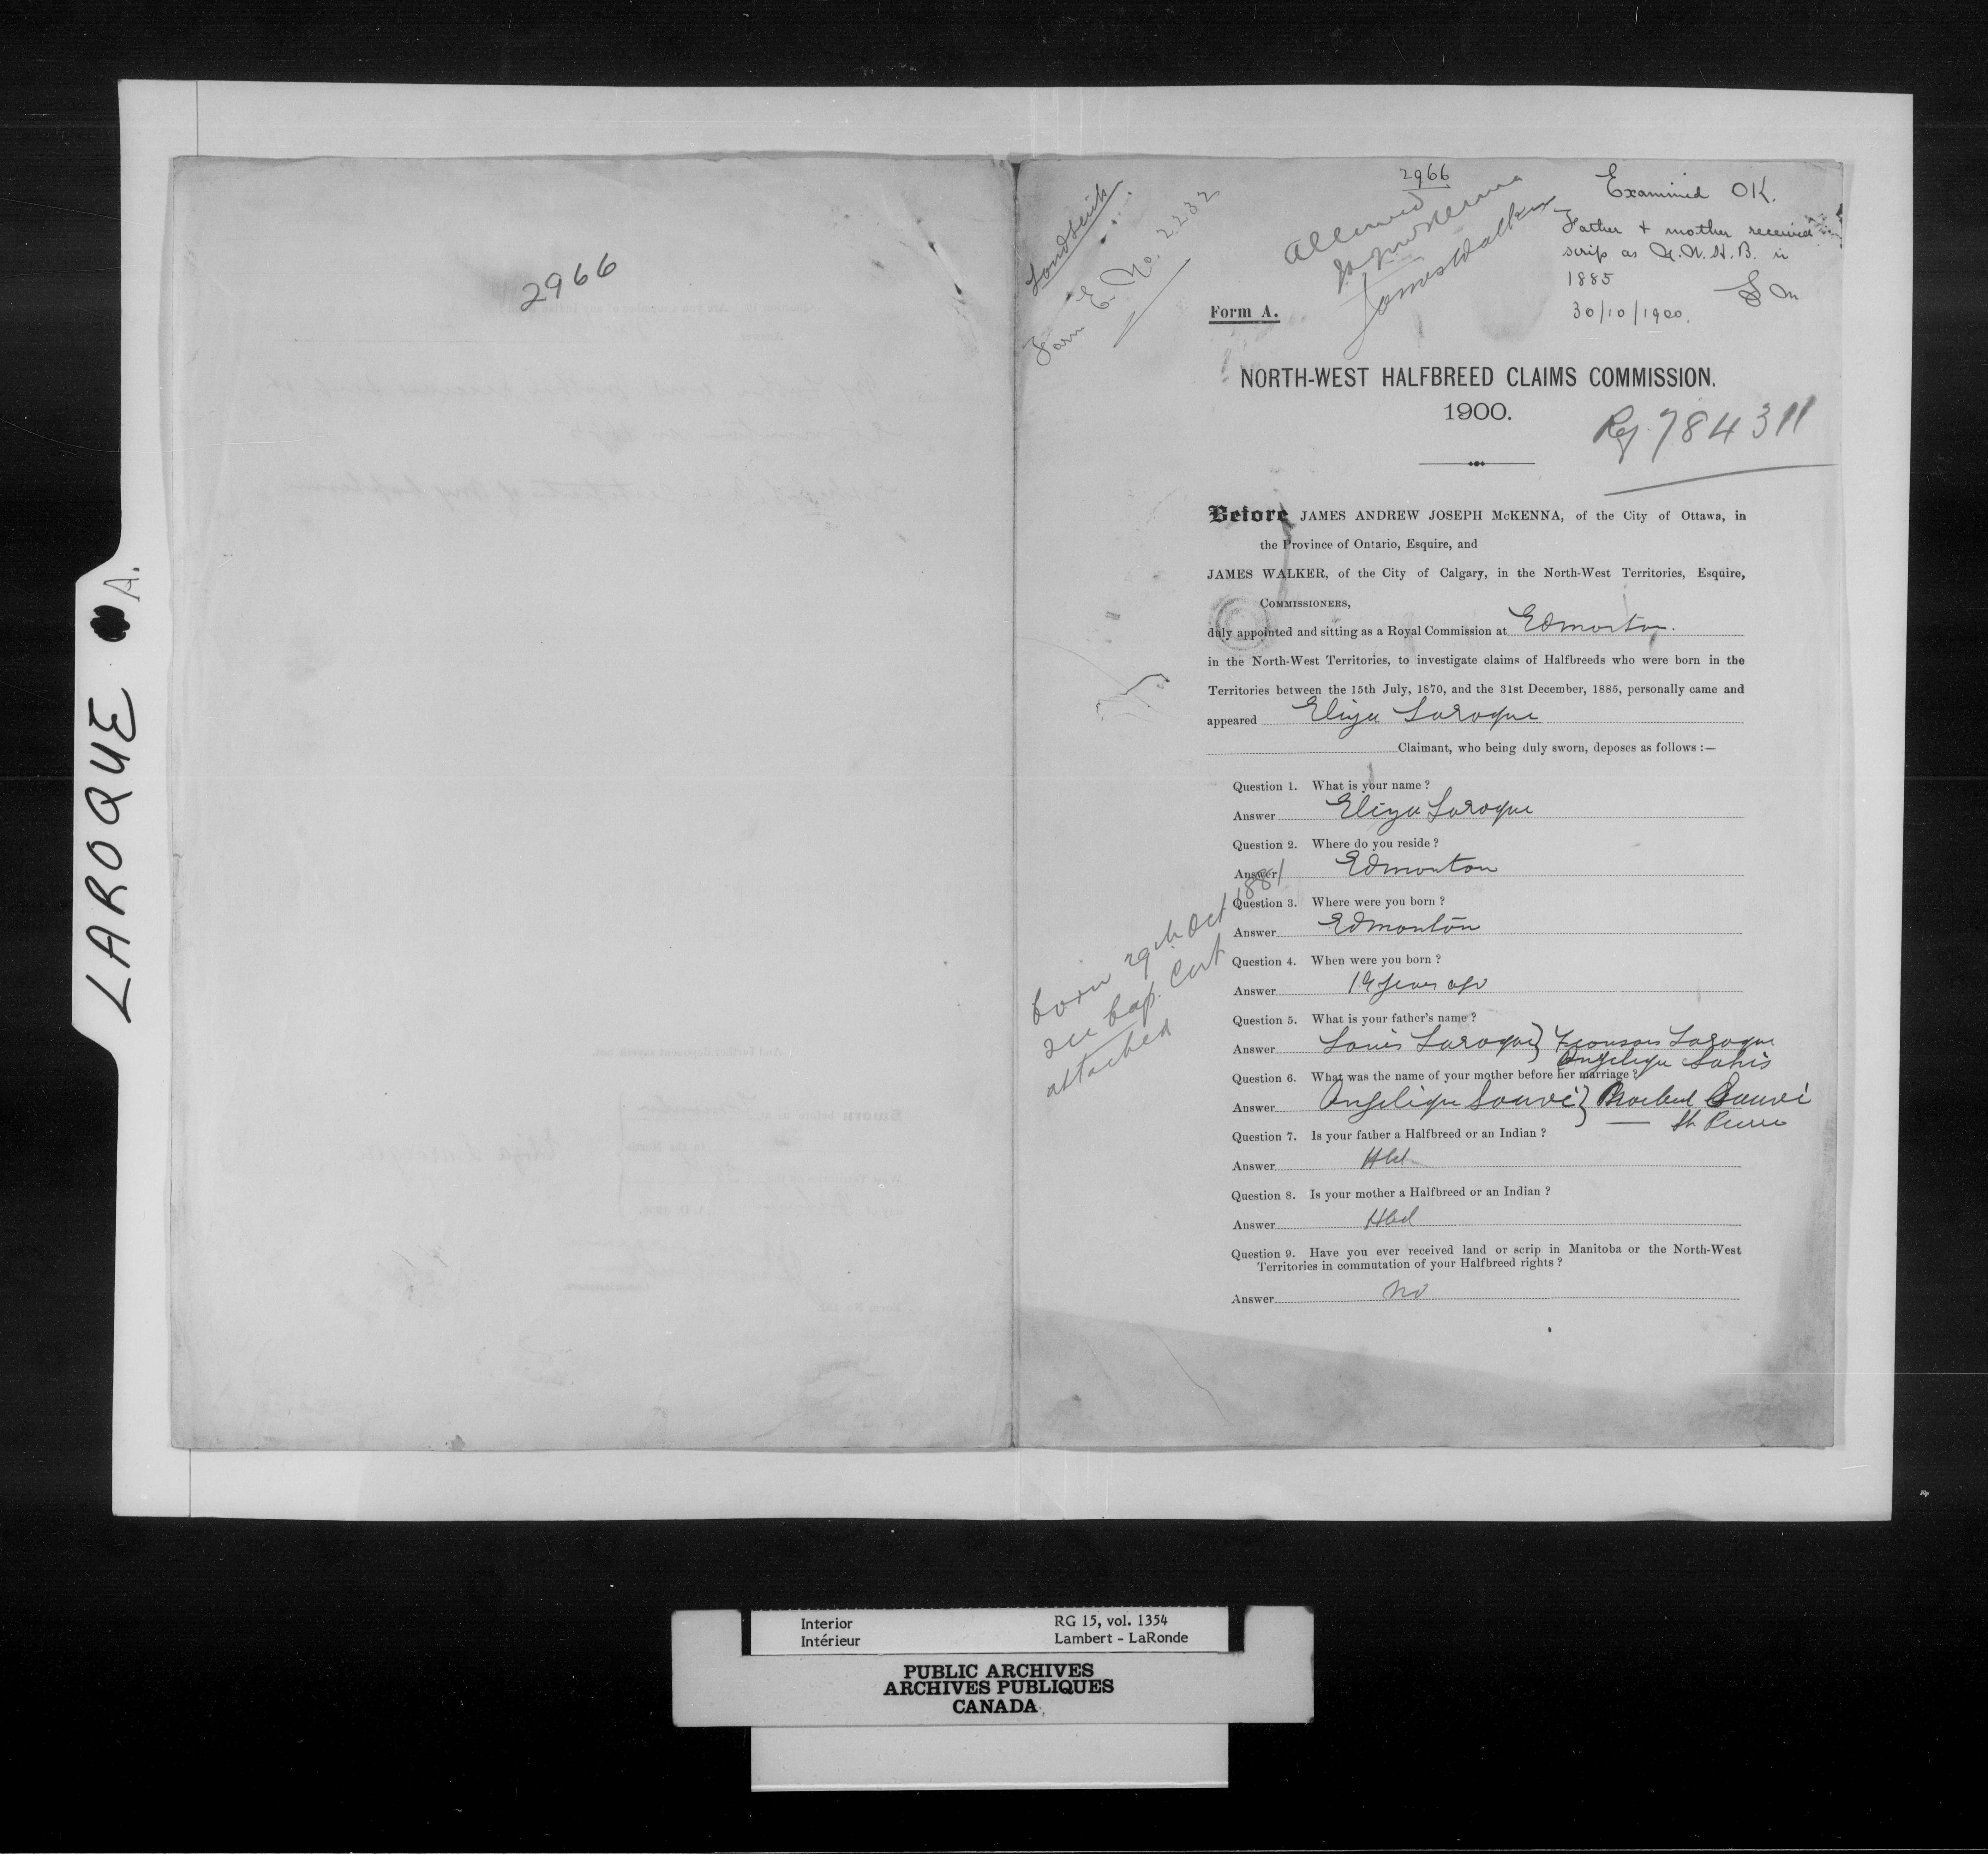 LAROQUE A.
2966
Landscrip
Form E. No. 2232
2966
Allowed
JAJ McKenna
James Walker
Examined OK.
Father + mother received
scrip as N.W.H.B. in
1885
30/10/1900.
Form A.
NORTH-WEST HALFBREED CLAIMS COMMISSION.
1900.
Reg. 784311
Before JAMES ANDREW JOSEPH McKENNA, of the City of Ottawa, in
the Province of Ontario, Esquire, and
JAMES WALKER, of the City of Calgary, in the North-West Territories, Esquire,
COMMISSIONERS,
duly appointed and sitting as a Royal Commission at Edmonton.
in the North-West Territories, to investigate claims of Halfbreeds who were born in the
Territories between the 15th July, 1870, and the 31st December, 1885, personally came and
appeared Eliza Laroque
Claimant, who being duly sworn, deposes as follows :—
Question 1. What is your name ?
Answer Eliza Laroque
Question 2. Where do you reside ?
Answer Edmonton
Question 3. Where were you born ?
Answer Edmonton
Question 4. When were you born ?
Answer 19 years ago
born 29th Oct 1881
see bap. Cert
attached
Question 5. What is your father's name ?
Answer Louis Laroque } Laroque
Angelique
Question 6. What was the name of your mother before her marriage ?
Answer Angelique Sauvé } Sauvé
St Pierre
Question 7. Is your father a Halfbreed or an Indian ?
Answer Hbd
Question 8. Is your mother a Halfbreed or an Indian ?
Answer Hbd
Question 9. Have you ever received land or scrip in Manitoba or the North-West
Territories in commutation of your Halfbreed rights ?
Answer No
Interior RG 15, vol. 1354
Intérieur Lambert - LaRonde
PUBLIC ARCHIVES
ARCHIVES PUBLIQUES
CANADA